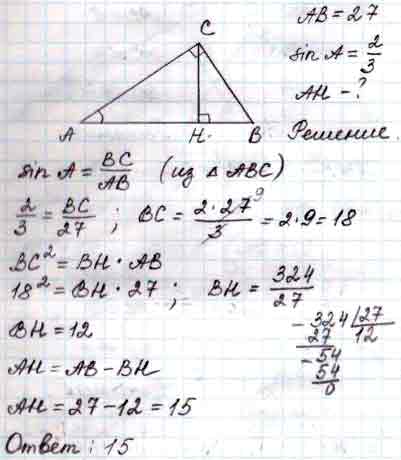 AB = 27
sin A = 2/3
AH - ?
C
A
H.
B
Решение.
sin A = BC/AB (из Δ ABC)
2/3 = BC/27 ; BC = 2·27⁹/3 = 2·9 = 18
BC² = BH · AB
18² = BH · 27 ; BH = 324/27
BH = 12
- 324 | 27
27 12
- 54
54
0
AH = AB - BH
AH = 27 - 12 = 15
Ответ : 15